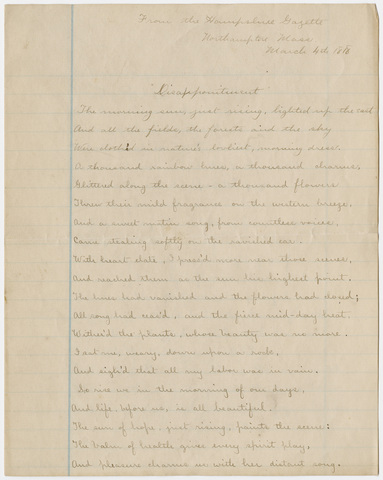 From the Hampshire Gazette
Northampton Mass
March 4th
Disappointment
The morning sun, just rising, lighted up the east
And all the fields, the forests and the sky
Were clothed in nature's loveliest, morning dress.
A thousand rainbow hues, a thousand charms,
Glittered along the scene - a thousand flowers
Threw their mild fragrance on the western breeze,
And a sweet matin song, from countless voices,
Came stealing softly on the ravished ear.
With heart elate, I press'd more near those scenes,
And reached them as the sun his highest point.
The hues had vanished and the flowers had closed;
All song had ceas'd, and the fierce mid-day heat
Wither'd the plants, whose beauty was no more.
I sat me, weary, down upon a rock,
And sigh'd that all my labor was in vain.
So rise we in the morning of our days,
And life before us, is all beautiful.
The sun of hope, just rising, paints the scene:
The balm of health gives every spirit play,
And pleasure charms us with her distant song.